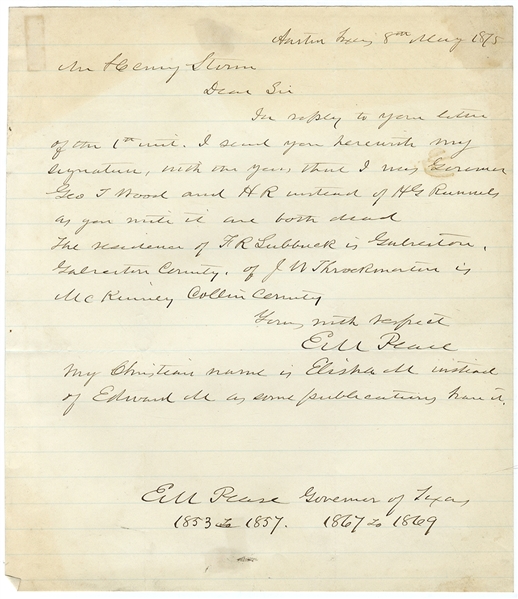 Austin Texas 8th May 1875
Mr Henry Storm
Dear Sir
In reply to your letter
of the 1st inst. I send you herewith my
signature, with the years that I was Governor
Geo T Wood and H R instead of H G Runnels
as you write it are both dead
The residence of F R Lubbuck is Galveston,
Galveston County. of J W Throckmorton is
McKinney Collin County
Yours with respect
E M Pease
My Christian name is Elisha M instead
of Edward M as some publications have it.
E M Pease Governor of Texas
1853 to 1857. 1867 to 1869